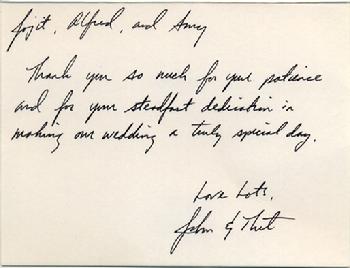 Jojit, Alfred, and Amy
Thank you so much for your patience
and for your steadfast dedication in
making our wedding a truly special day.
Love Lots,
John &